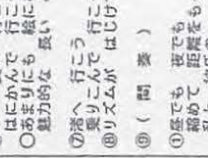 はにかんで 行こ
○あまりにも 絵に
魅力的な 長い
⑦渚へ 行こう
乗りこんで 行こ
⑧リズムが はじけ
⑨( 間 奏 )
①昼でも 夜でも
縮めて 距離を